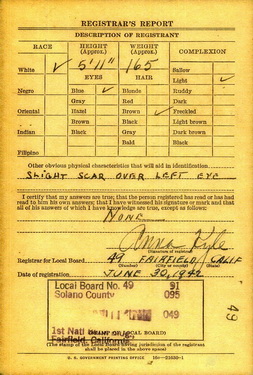 REGISTRAR'S REPORT
DESCRIPTION OF REGISTRANT
RACE HEIGHT (Approx.) WEIGHT (Approx.) COMPLEXION
White ✓ 5'11" 165 Sallow
EYES HAIR Light ✓
Negro Blue ✓ Blonde Ruddy
Gray Red Dark
Oriental Hazel Brown ✓ Freckled
Brown Black Light brown
Indian Black Gray Dark brown
Bald Black
Filipino
Other obvious physical characteristics that will aid in identification
SLIGHT SCAR OVER LEFT EYE
I certify that my answers are true; that the person registered has read or has
had read to him his own answers; that I have witnessed his signature or mark and that
all of his answers of which I have knowledge are true, except as follows:
NONE
Anna Kyle
Registrar for Local Board 49 FAIRFIELD CALIF
(Number) (City or county) (State)
Date of registration JUNE 30, 1942
Local Board No. 49 91
Solano County 095
049
1st Natl
Fairfield, California
(STAMP OF LOCAL BOARD)
(The stamp of the Local Board having jurisdiction of the registrant
shall be placed in the above space)
U. S. GOVERNMENT PRINTING OFFICE 16—21630-1
49